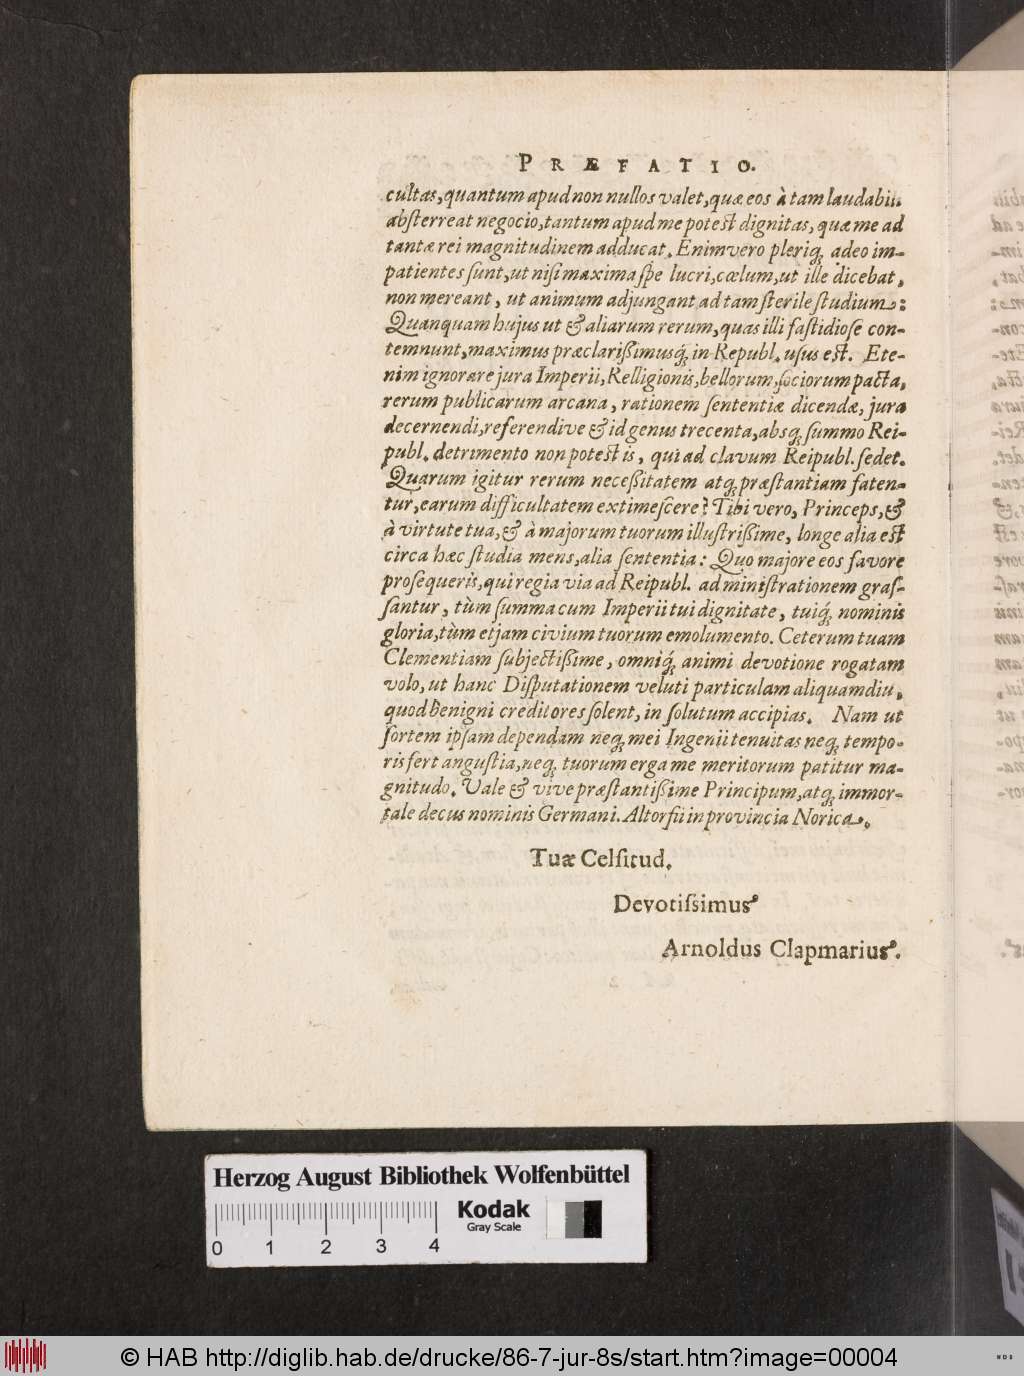 PRÆFATIO.
cultas, quantum apud non nullos valet, quæ eos à tam laudabili
absterreat negocio, tantum apud me potest dignitas, quæ me ad
tantæ rei magnitudinem adducat. Enimvero pleriq́; adeo im-
patientes sunt, ut nisi maxima spe lucri, cœlum, ut ille dicebat,
non mereant, ut animum adjungant ad tam sterile studium:
Quanquam hujus ut & aliarum rerum, quas illi fastidiose con-
temnunt, maximus præclarißimusq́; in Republ. usus est. Ete-
nim ignorare jura Imperii, Relligionis, bellorum, sociorum pacta,
rerum publicarum arcana, rationem sententiæ dicendæ, jura
decernendi, referendive & id genus trecenta, absq́; summo Rei-
publ. detrimento non potest is, qui ad clavum Reipubl. sedet.
Quarum igitur rerum necessitatem atq́; præstantiam faten-
tur, earum difficultatem extimescere? Tibi vero, Princeps, &
à virtute tua, & à majorum tuorum illustrißime, longe alia est
circa hæc studia mens, alia sententia: Quo majore eos favore
prosequeris, qui regia via ad Reipubl. administrationem gras-
santur, tùm summa cum Imperii tui dignitate, tuiq́; nominis
gloria, tùm etjam civium tuorum emolumento. Ceterum tuam
Clementiam subjectißime, omniq́; animi devotione rogatam
volo, ut hanc Disputationem veluti particulam aliquam diu,
quod benigni creditores solent, in solutum accipias. Nam ut
sortem ipsam dependam neq́; mei Ingenii tenuitas neq́; tempo-
ris fert angustia, neq́; tuorum erga me meritorum patitur ma-
gnitudo. Vale & vive præstantißime Principum, atq́; immor-
tale decus nominis Germani. Altorfii in provincia Norica.
Tuæ Celsitud.
Devotissimus
Arnoldus Clapmarius.
Herzog August Bibliothek Wolfenbüttel
0 1 2 3 4
Kodak
Gray Scale
© HAB http://diglib.hab.de/drucke/86-7-jur-8s/start.htm?image=00004